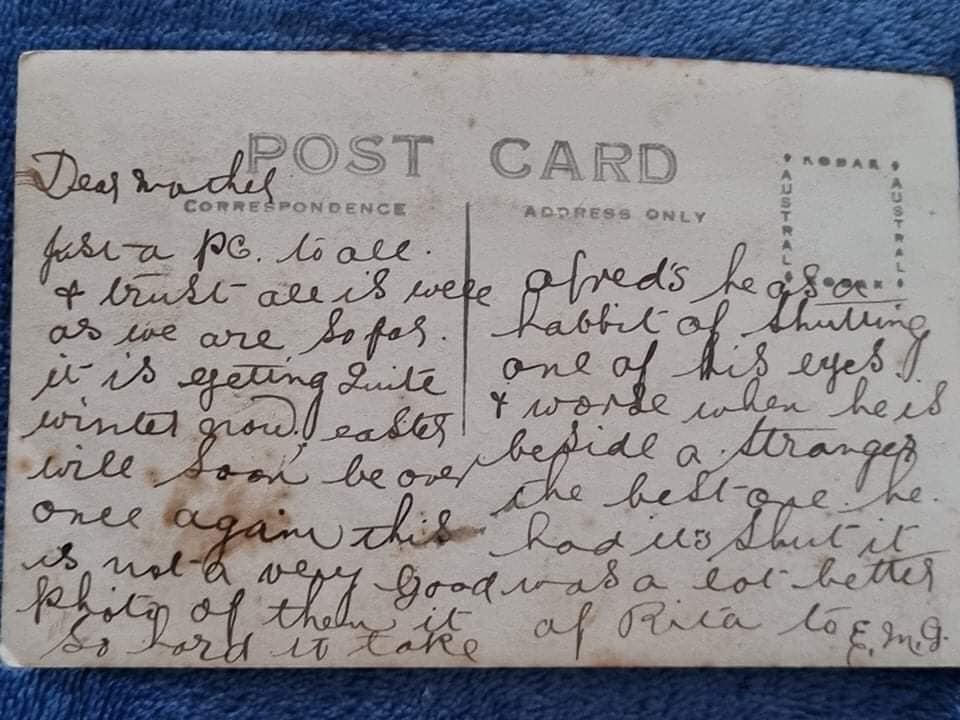 POST CARD
CORRESPONDENCE
ADDRESS ONLY
KODAK
AUSTRAL
AUSTRAL
Dear Mother
Just a PC. to all.
& trust all is well
as we are so far.
it is geting quite
winter now. easter
will soon be over
once again this
is not a very good
photo of them it
so hard to take
afred's he as a
habbit of shutting
one of his eyes.
& worse when he is
beside a stranger
the best one he
had its shut it
was a lot better
of Rita to E.M.G.